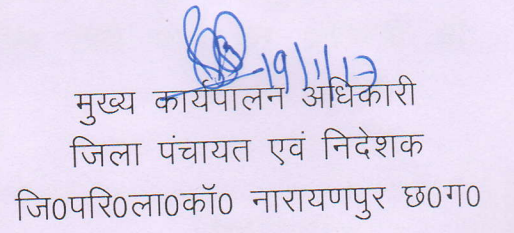 19/1/13
मुख्य कार्यपालन अधिकारी
जिला पंचायत एवं निदेशक
जि0परि0ला0कॉ0 नारायणपुर छ0ग0